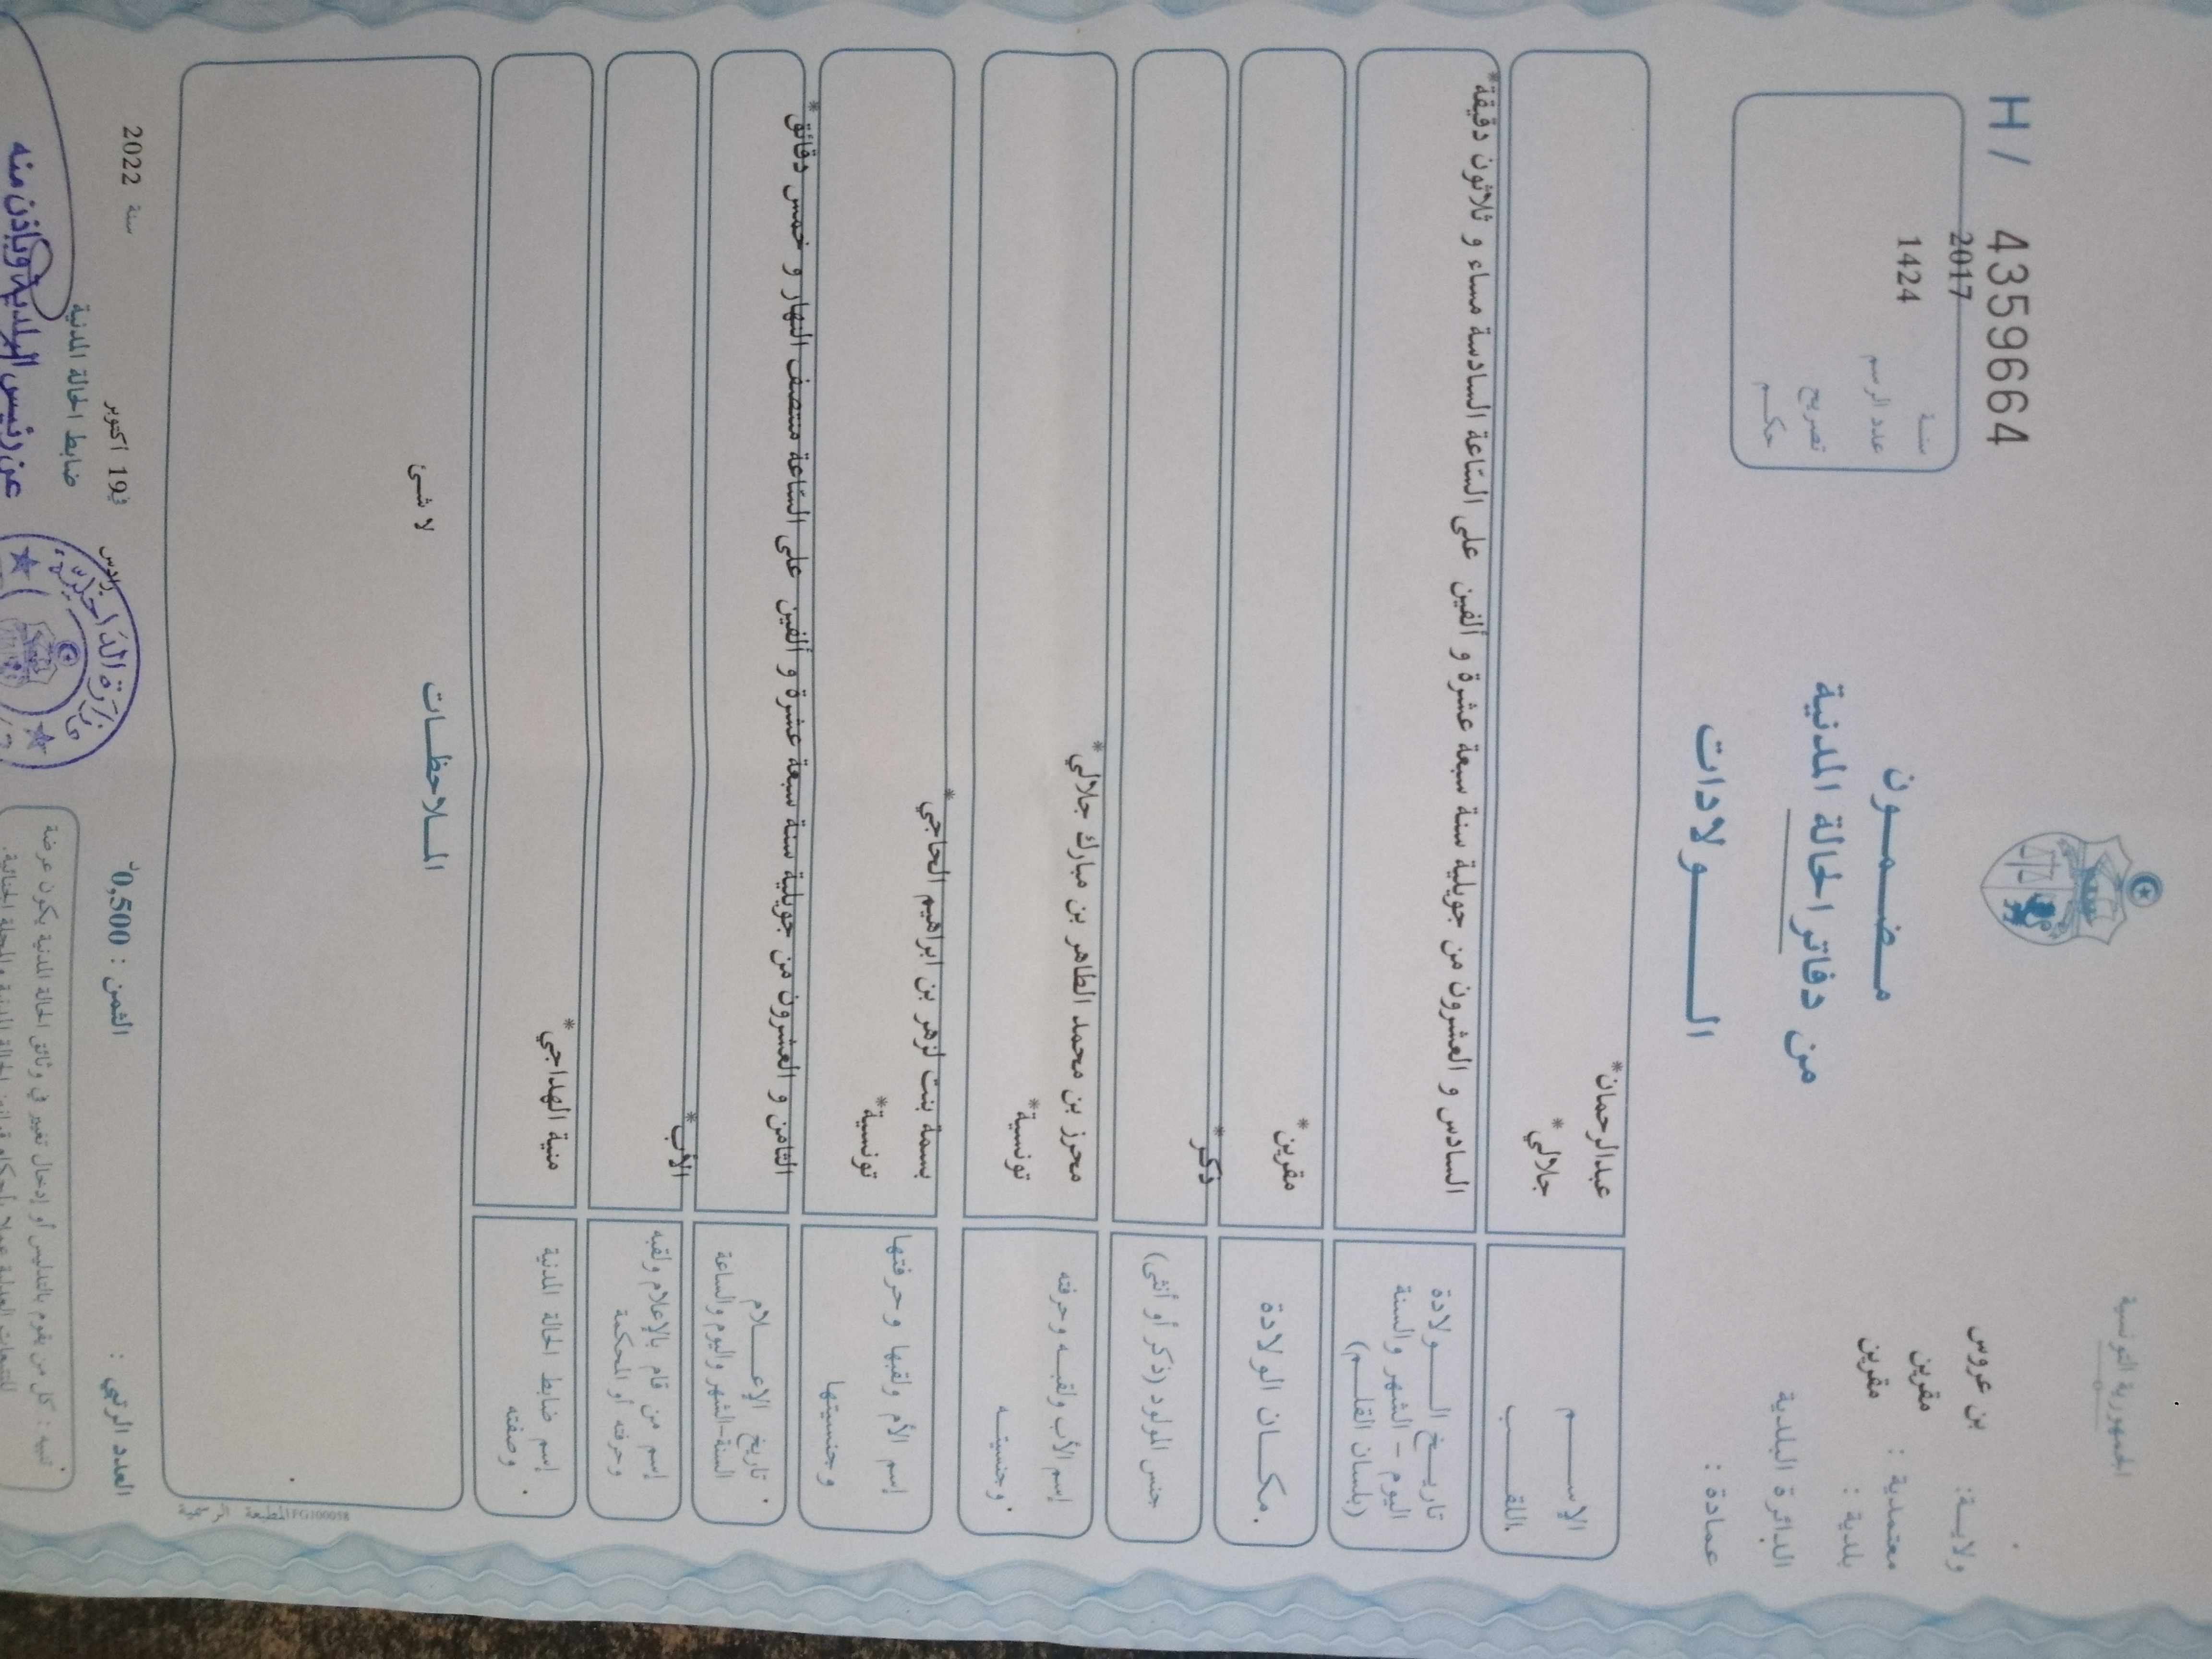 الجمهورية التونسية
H / 4359664
ولايــة: بن عروس
معتمدية : مقرين
بلدية : مقرين
الدائرة البلدية
عمادة :
مـضـمـون
من دفاتر الحالة المدنية
الـــولادات
سنـة 2017
عدد الرسم 1424
تصريح
حكـم
الإســـم عبدالرحمان*
اللقـــب جلالي*
تاريـخ الــولادة
اليوم - الشهر والسنة
(بلسان القلـم)
السادس و العشرون من جويلية سنة سبعة عشرة و ألفين على السّاعة السادسة مساء و ثلاثون دقيقة*
مكـان الولادة مقرين*
جنس المولود (ذكر أو أنثى) ذكر*
إسم الأب ولقبـه وحرفته محرز بن محمد الطاهر بن مبارك جلالي*
وجنسيتـه تونسية*
إسم الأم ولقبها وحرفتها بسمة بنت لزهر بن ابراهيم الحاجي*
وجنسيتها تونسية*
تاريخ الإعــلام
السنة-الشهر واليوم والساعة
الثامن و العشرون من جويلية سنة سبعة عشرة و ألفين على السّاعة منتصف النهار و خمس دقائق*
إسم من قام بالإعلام ولقبه
وحرفته أو المحكمة
الأب*
إسم ضابط الحالة المدنية
وصفته
منية الهداجي*
المـلاحظـات
لا شئ
المطبعة الرسمية FG100058
العدد الرتبي :
الثمن : 0,500د
رادس في 19 أكتوبر سنة 2022
ضابط الحالة المدنية
عن رئيس البلدية وبإذن منه
وزارة الداخلية
تنبيه : كل من يقوم بالتدليس أو إدخال تغيير في وثائق الحالة المدنية يكون عرضة
للتتبعات العدلية عملا بأحكام قوانين الحالة المدنية والمجلة الجنائية.